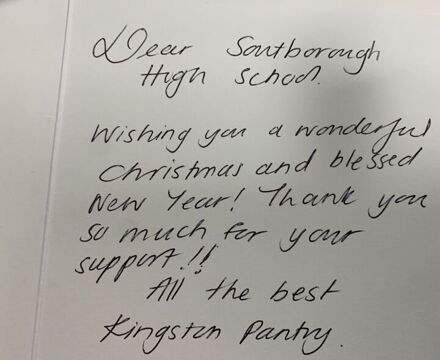 Dear Soutborough
High School.
Wishing you a wonderful
Christmas and blessed
New Year! Thank you
so much for your
support!!
All the best
Kingston Pantry.